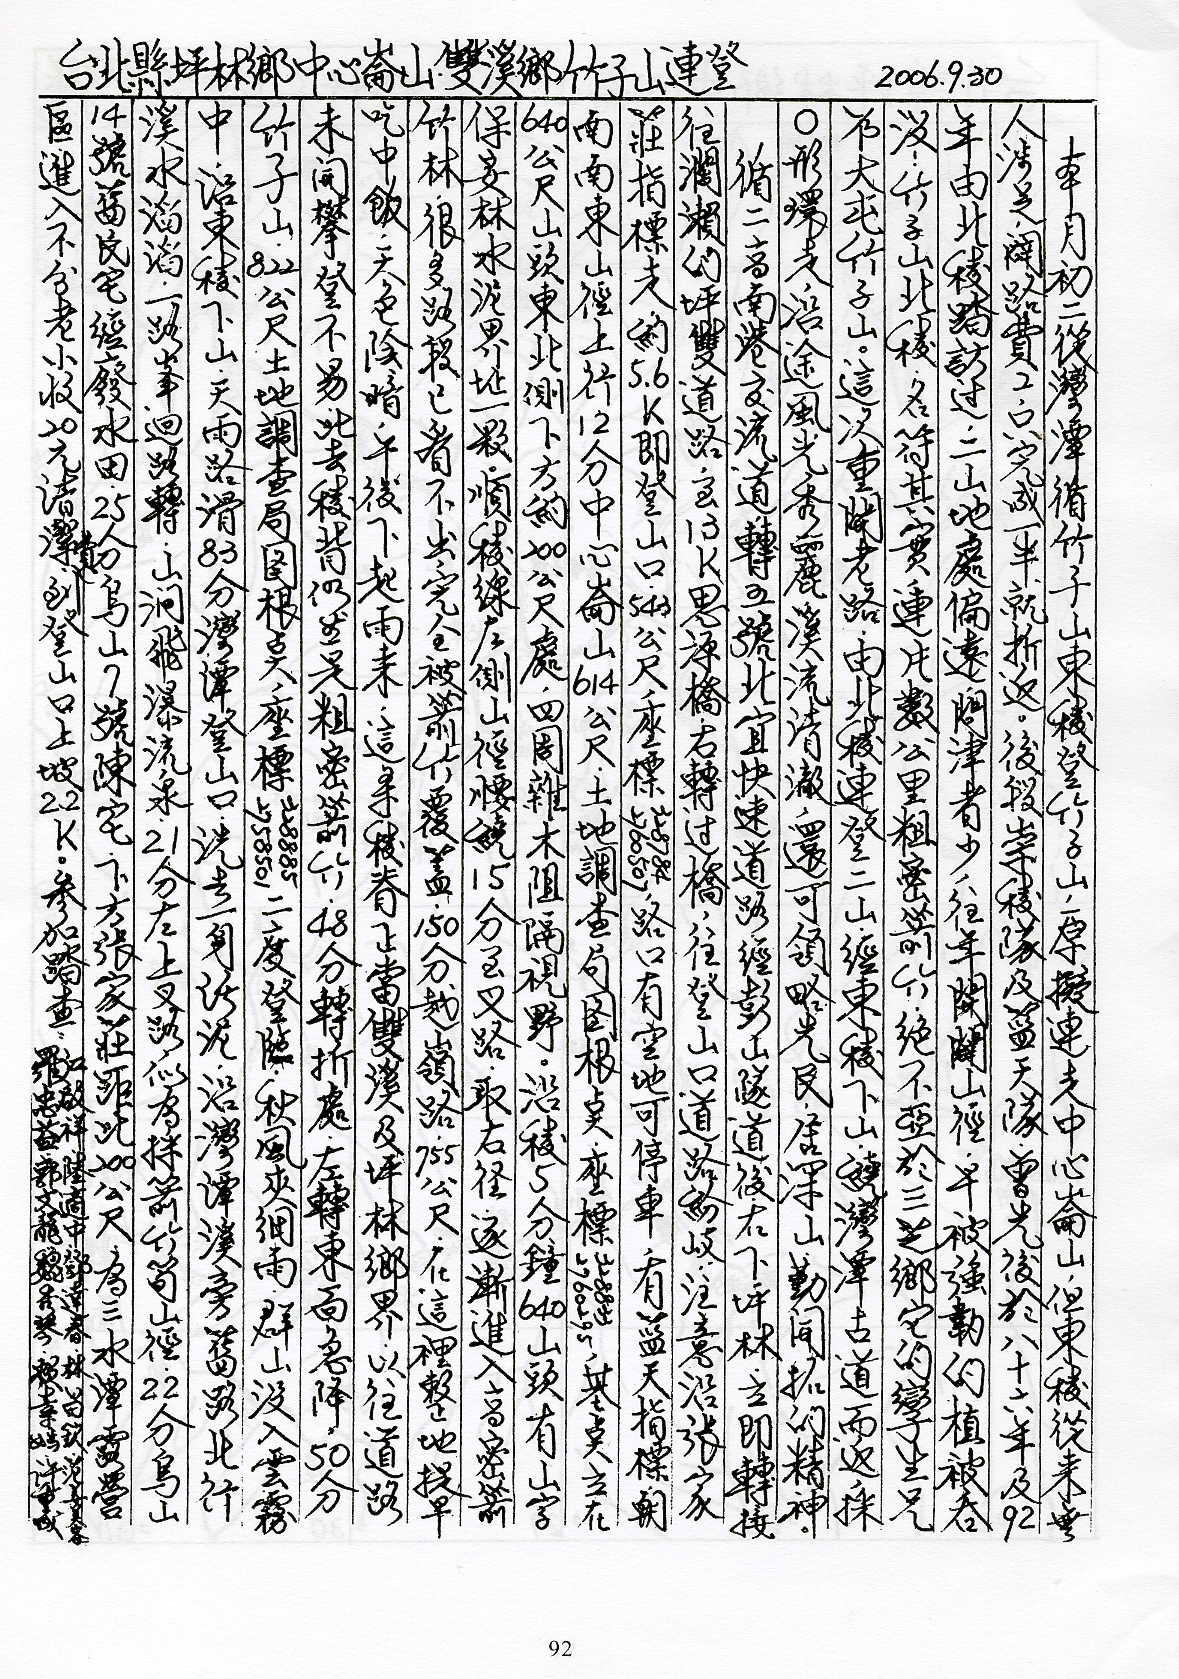 台北縣坪林鄉中心崙山.雙溪鄉竹子山連登
2006.9.30
本月初二從灣潭循竹子山東稜登竹子山,原擬連走中心崙山,但東稜從來無
人涉足,闢路費工,只完成一半就折返。後段崇稜隊及藍天隊,曾先後於八十六年及92
年由北稜踏訪过,二山地處偏遠,問津者少,往年開闢山徑,早被強勁的植被吞
沒.竹子山北稜.名符其實連片數公里粗密箭竹,絕不亞於三芝鄉它的孿生兄
弟大屯竹子山。這次重開老路,由北稜連登二山,經東稜下山,繞灣潭古道而返採
O形環走,沿途風光秀麗溪流清澈,還可領略先民居深山勤開拓的精神。
循二高南港交流道轉五號北宜快速道路經彭山隧道後右下坪林,立即轉接
往濶瀨的坪雙道路至13K思源橋右轉过橋,往登山口道路紛歧,注意沿張家
莊指標走,約5.6K即登山口543公尺座標,路口有空地可停車,有藍天指標朝
南南東山徑上行12分中心崙山614公尺.土地調查局图根点.座標.基点立在
640公尺山頭東北側下方約200公尺處.四周雜木阻隔視野。沿稜5分鐘640山頭有山字
保安林水泥界址一顆.順稜線左側山徑腰繞15分至叉路.取右徑.逐漸進入高密箭
竹林.很多路段已看不出完全被箭竹覆蓋.150分越嶺路.755公尺.在這裡整地提早
吃中飯.天色陰暗.午後下起雨來.這条稜脊上當雙溪及坪林鄉界.以往道路
未開攀登不易,此去稜背仍然是粗密箭竹.48分轉折處.左轉東面急降.50分
竹子山.822公尺土地調查局图根点.座標 二度登臨.秋風夾細雨.群山沒入雲霧
中.沿東稜下山.天雨路滑83分灣潭登山口.洗去一身污泥.沿灣潭溪旁舊路北行
溪水滔滔.一路峯迴路轉.山澗飛瀑流泉21分左上叉路,似為採箭竹筍山徑.22分烏山
14號舊民宅經廢水田25分烏山7號陳宅.下方張家莊距此200公尺.為三水潭露營
區.進入不分老小收20元清潔費.到登山口上坡2.2K。參加踏查:
92